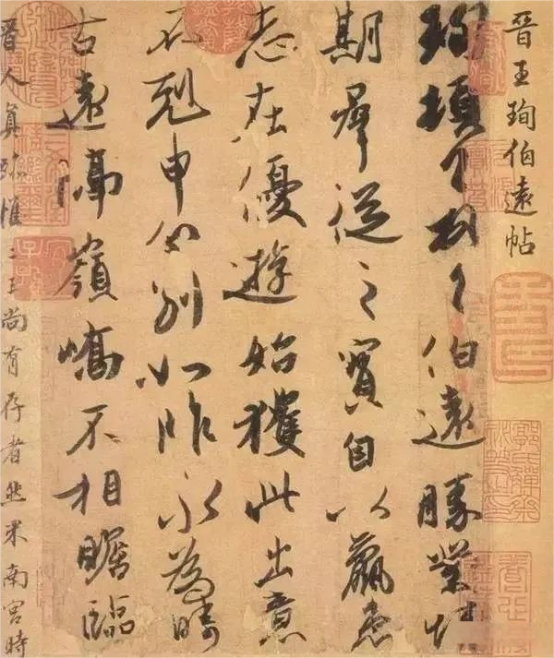 晉王珣伯遠帖
珣頓首頓首伯遠勝業情
期羣從之寶自以羸患
志在優游始獲此出意
不剋申分別如昨永為疇
古遠隔嶺嶠不相瞻臨
晉人真蹟惟二王尚有存者然米南宮時